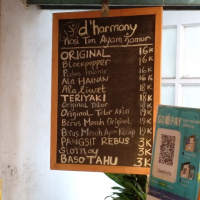 d'harmony
Nasi Tim Ayam Jamur
ORIGINAL 16K
Blackpepper 16K
Pedas manis 16K
Ala HAINAN 16K
Ala liwet 16K
TERIYAKI 18K
Original Telur 18K
Original Telur Asin
Beras Merah Original 19K
Beras Merah Ayam Kecap 19K
PANGSIT REBUS 3K
Siomay 3K
BASO TAHU 3K
GOPAY